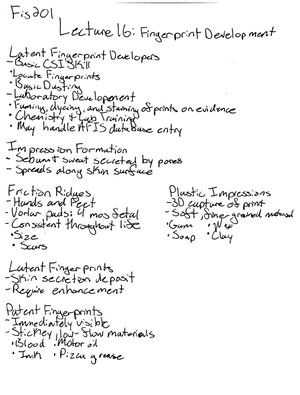 Fis201
Lecture 16: Fingerprint Development
Latent Fingerprint Developers
- Basic CSI Skill
• Locate Fingerprints
• Basic Dusting
- Laboratory Development
• Fuming, dyeing, and staining of prints on evidence
• Chemistry & Lab Training
• May handle AFIS database entry
Impression Formation
- Sebum & sweat secreted by pores
- Spreads along skin surface
Friction Ridges
- Hands and Feet
- Volar pads: 4 mos fetal
- Consistent throughout life
• Size
• Scars
Plastic Impressions
- 3D capture of print
- Soft, fine-grained material
• Gum • Wax
• Soap • Clay
Latent Fingerprints
- Skin secretion deposit
- Require enhancement
Patent Fingerprints
- Immediately visible
- Stickey, low-flow materials
• Blood • Motor oil
• Ink • Pizza grease